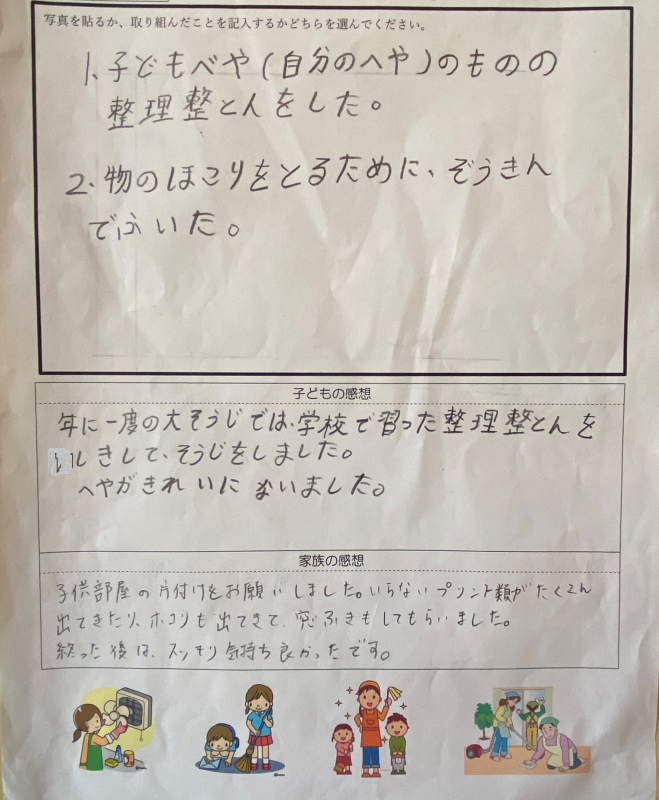 写真を貼るか、取り組んだことを記入するかどちらを選んでください。
1、子どもべや(自分のへや)のものの
整理整とんをした。
2、物のほこりをとるために、ぞうきん
でふいた。
子どもの感想
年に一度の大そうじでは、学校で習った整理整とんを
いしきして、そうじをしました。
へやがきれいにないました。
家族の感想
子供部屋の片付けをお願いしました。いらないプリント類がたくさん
出てきたり、ホコリも出てきて、窓ふきもしてもらいました。
終った後は、スッキリ気持ち良かったです。